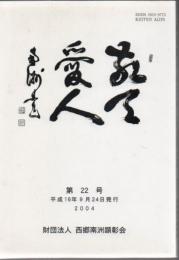 敬天
愛人
南洲書
第 22 号
平成16年9月24日発行
2004
財団法人 西郷南洲顕彰会